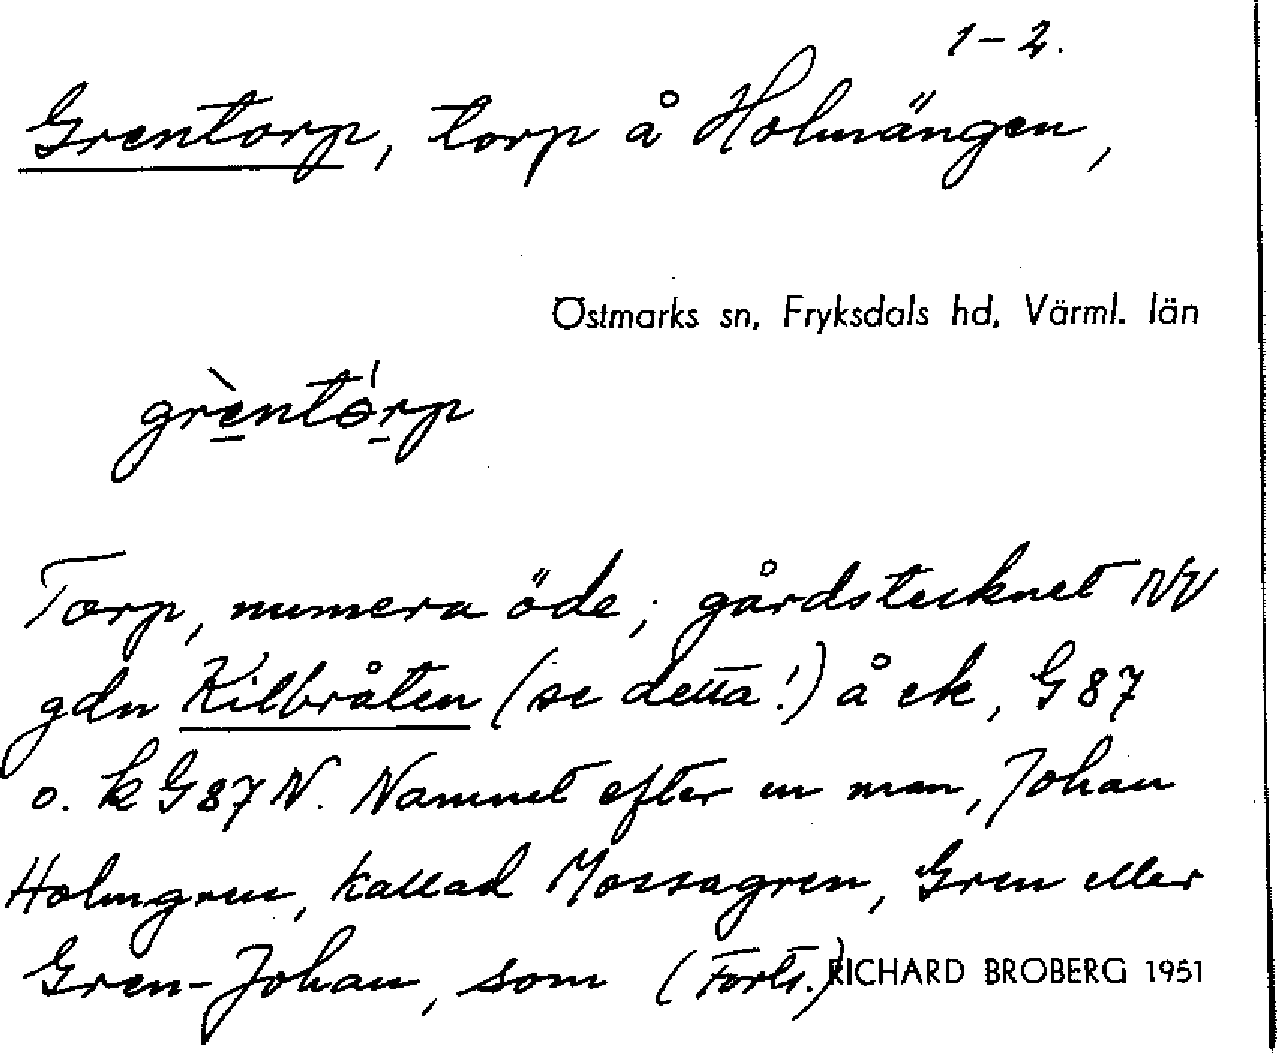 1-2.
Grentorp, torp å Holmängen,
Östmarks sn, Fryksdals hd, Värml. län
grèntórp
Torp, numera öde, gårdstecknet NV
gdn Kilbråten (se detta!) å ek, G 87
o. k G 87 N. Namnet efter en man, Johan
Holmgren, kallad Mossagren, Gren eller
Gren-Johan, som (Forts.) RICHARD BROBERG 1951